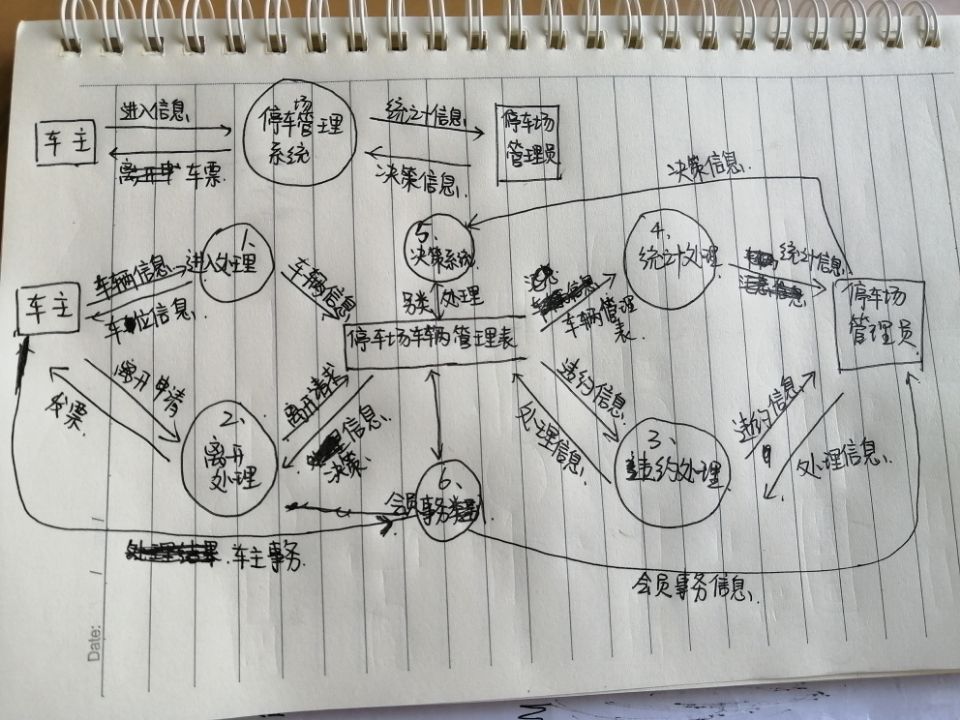 进入信息
车主
停车场管理
系统
统计信息
停车场
管理员
车票
决策信息
决策信息
1、
进入处理
车辆信息
车位信息
车主
车辆信息
5、
决策系统
另类处理
4、
统计处理
统计信息
车辆管理
表
停车场
管理员
停车场车辆管理表
离开申请
发票
2、
离开
处理
离开请求
信息
决策
违约信息
处理信息
3、
违约处理
违约信息
处理信息
6、
会员事务
车主事务
会员事务信息
Date: